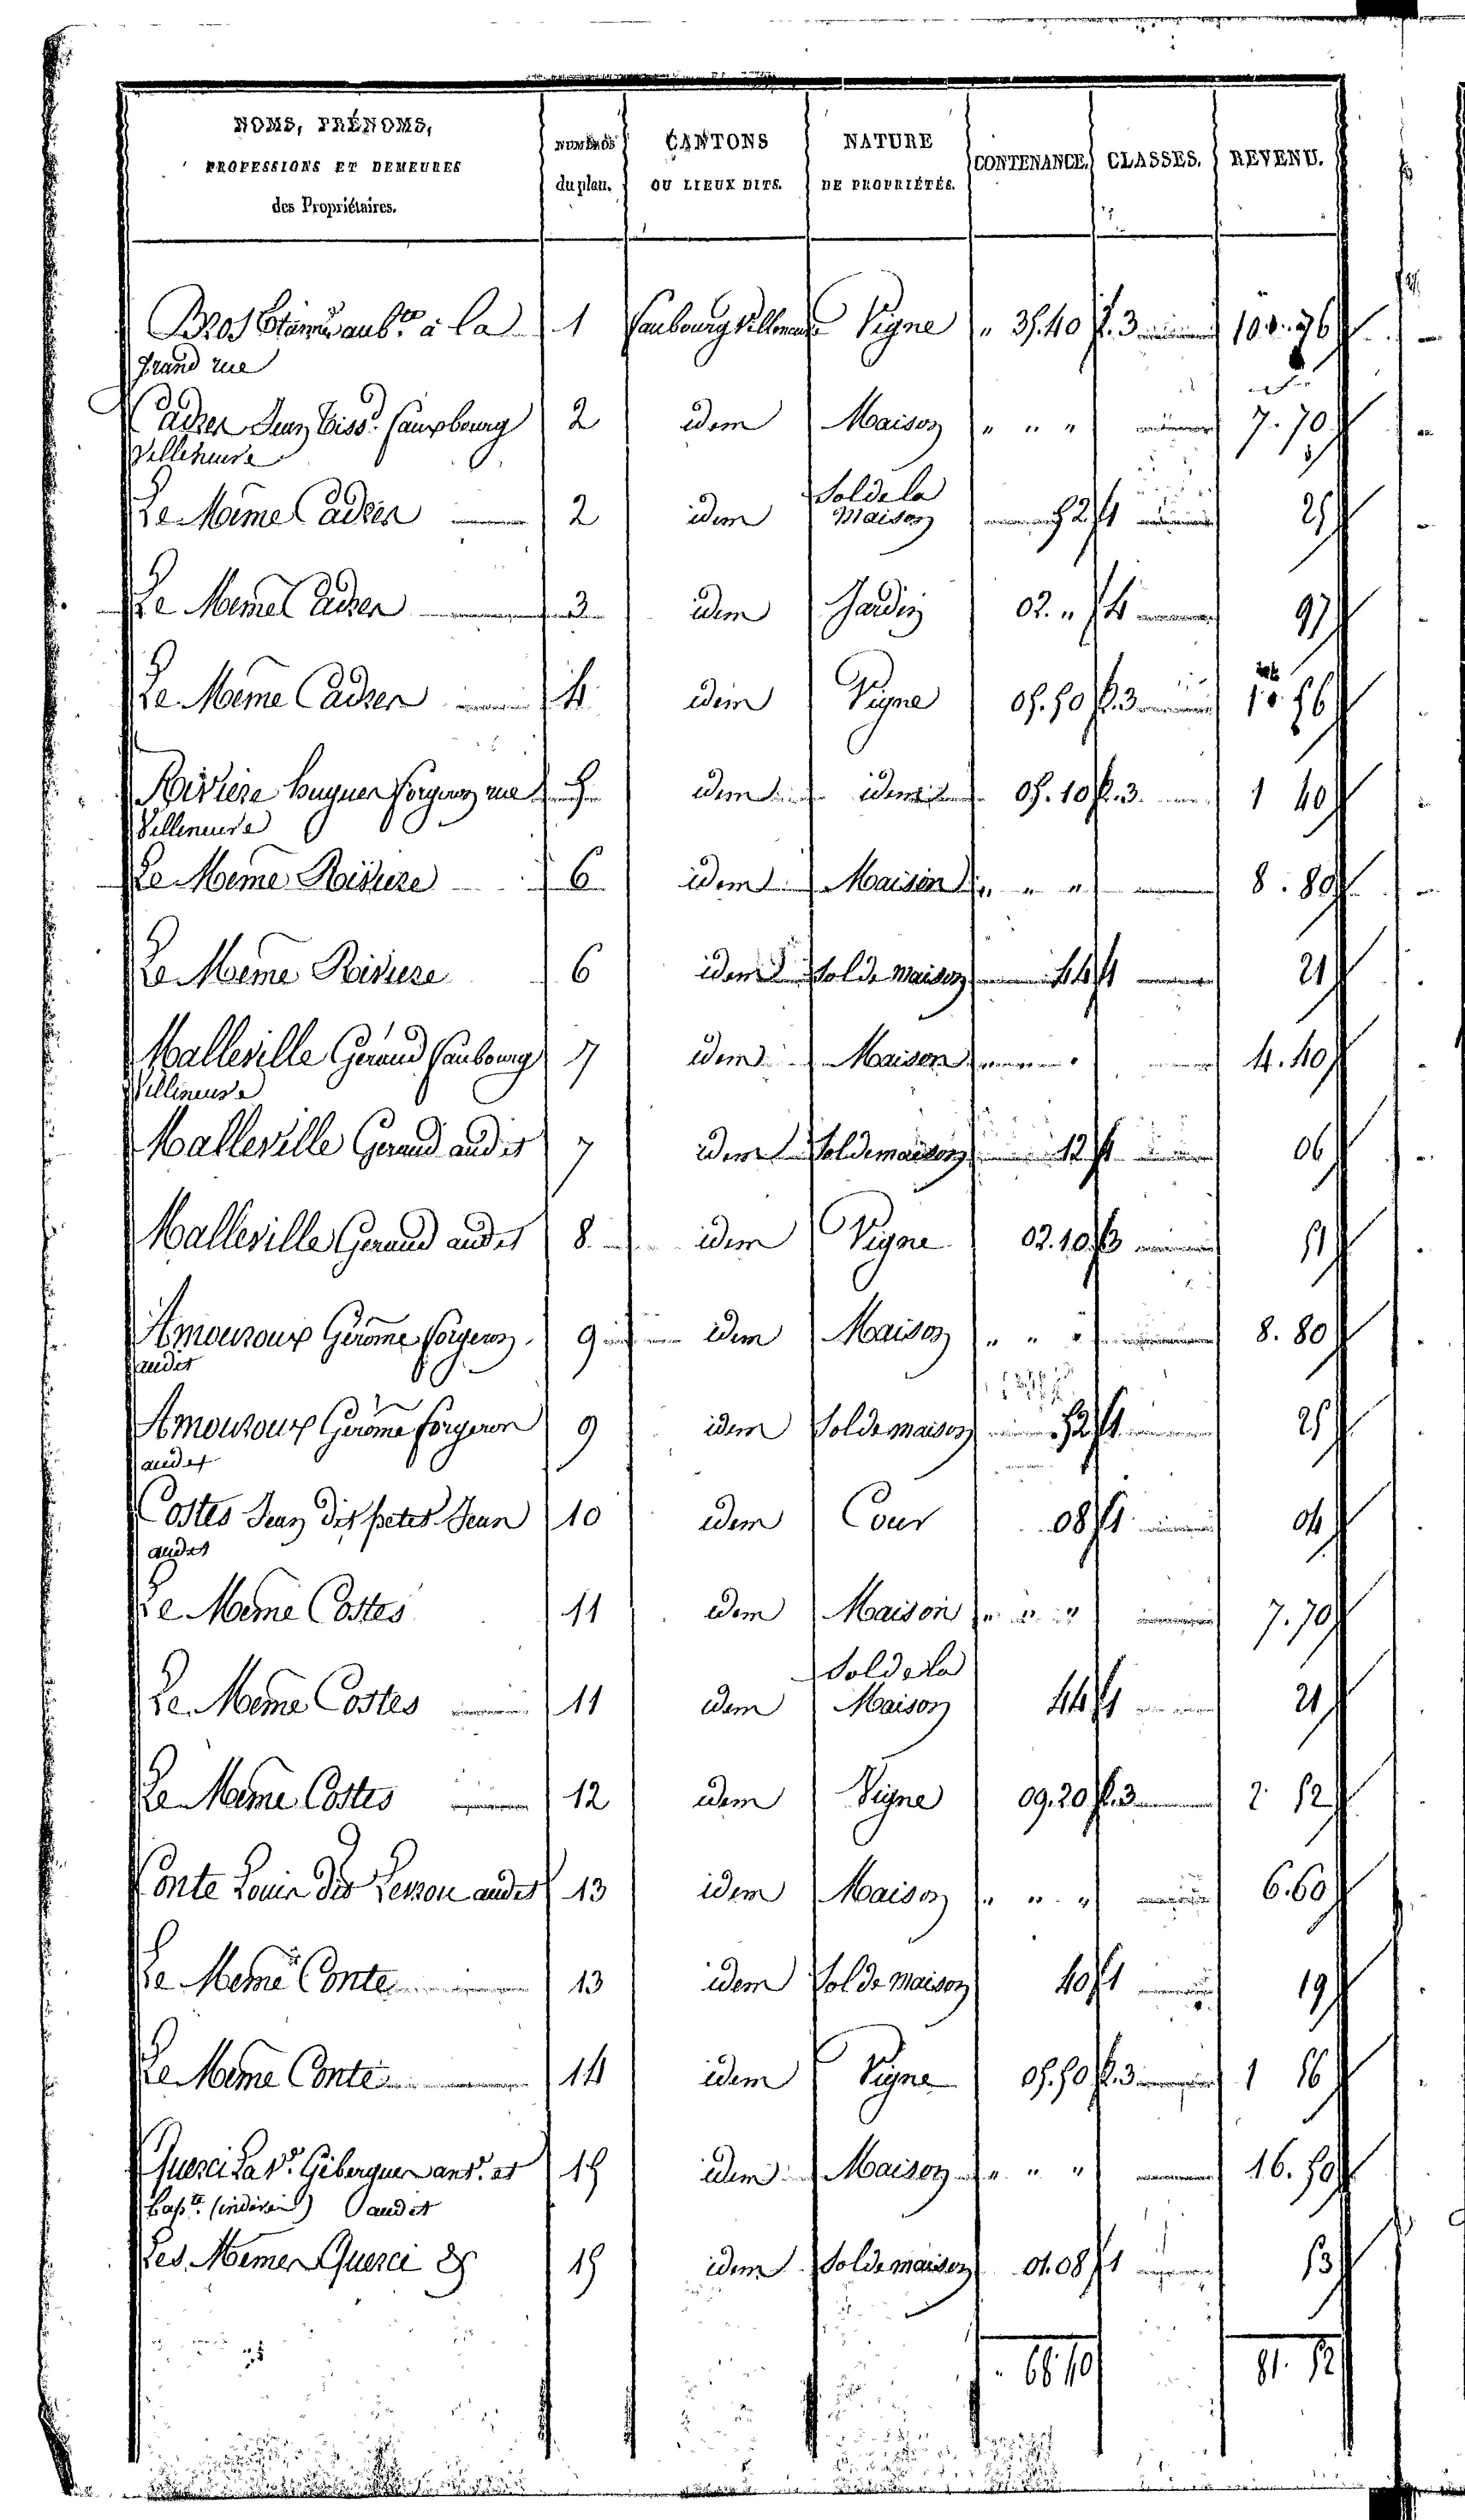 NOMS, PRÉNOMS,
PROFESSIONS ET DEMEURES
des Propriétaires.
NUMÉROS
du plan.
CANTONS
OU LIEUX DITS.
NATURE
DE PROPRIÉTÉS.
CONTENANCE.
CLASSES.
REVENU.
Bros aubte à la 1 faubourg Villeneuve Vigne " 35.40 3
Grand rue
Cadren Jean Tissd fauxbourg 2 idem Maison " " " 7.70
Villeneuve
Le Meme Cadren 2 idem Sol de la Maison 52 1 25
Le Meme Cadren 3 idem Jardin 02. " 4 97
Le Meme Cadren 4 idem Vigne 05.50 3
Riviere hugues forgeron rue 5 idem idem 05.10 3 1 40
Villeneuve
Le Meme Riviere 6 idem Maison " " " 8.80
Le Meme Riviere 6 idem Sol de maison 44 1 21
Malleville Geraud faubourg 7 idem Maison 4.40
Villeneuve
Malleville Geraud audit 7 idem Sol de maison 12 1 06
Malleville Geraud audit 8 idem Vigne 02.10 3 51
Amouroux Gerome forgeron 9 idem Maison " " " 8.80
audit
Amouroux Gerome forgeron 9 idem Sol de maison 52 1 25
audit
Costes Jean dit petit Jean 10 idem Cour 08 1 04
audit
Le Meme Costes 11 idem Maison " " " 7.70
Le Meme Costes 11 idem Sol de la Maison 44 1 21
Le Meme Costes 12 idem Vigne 09.20 3 2 52
Conte Louis dit audit 13 idem Maison " " " 6.60
Le Meme Conte 13 idem Sol de maison 40 1 19
Le Meme Conte 14 idem Vigne 05.50 3 1 56
Querci La Ve. Gibergues ant. et 15 idem Maison " " " 16.50
bapte (indivis) audit
Les Memes Querci & 15 idem Sol de maison 01.08 1 53
68.10 81.52